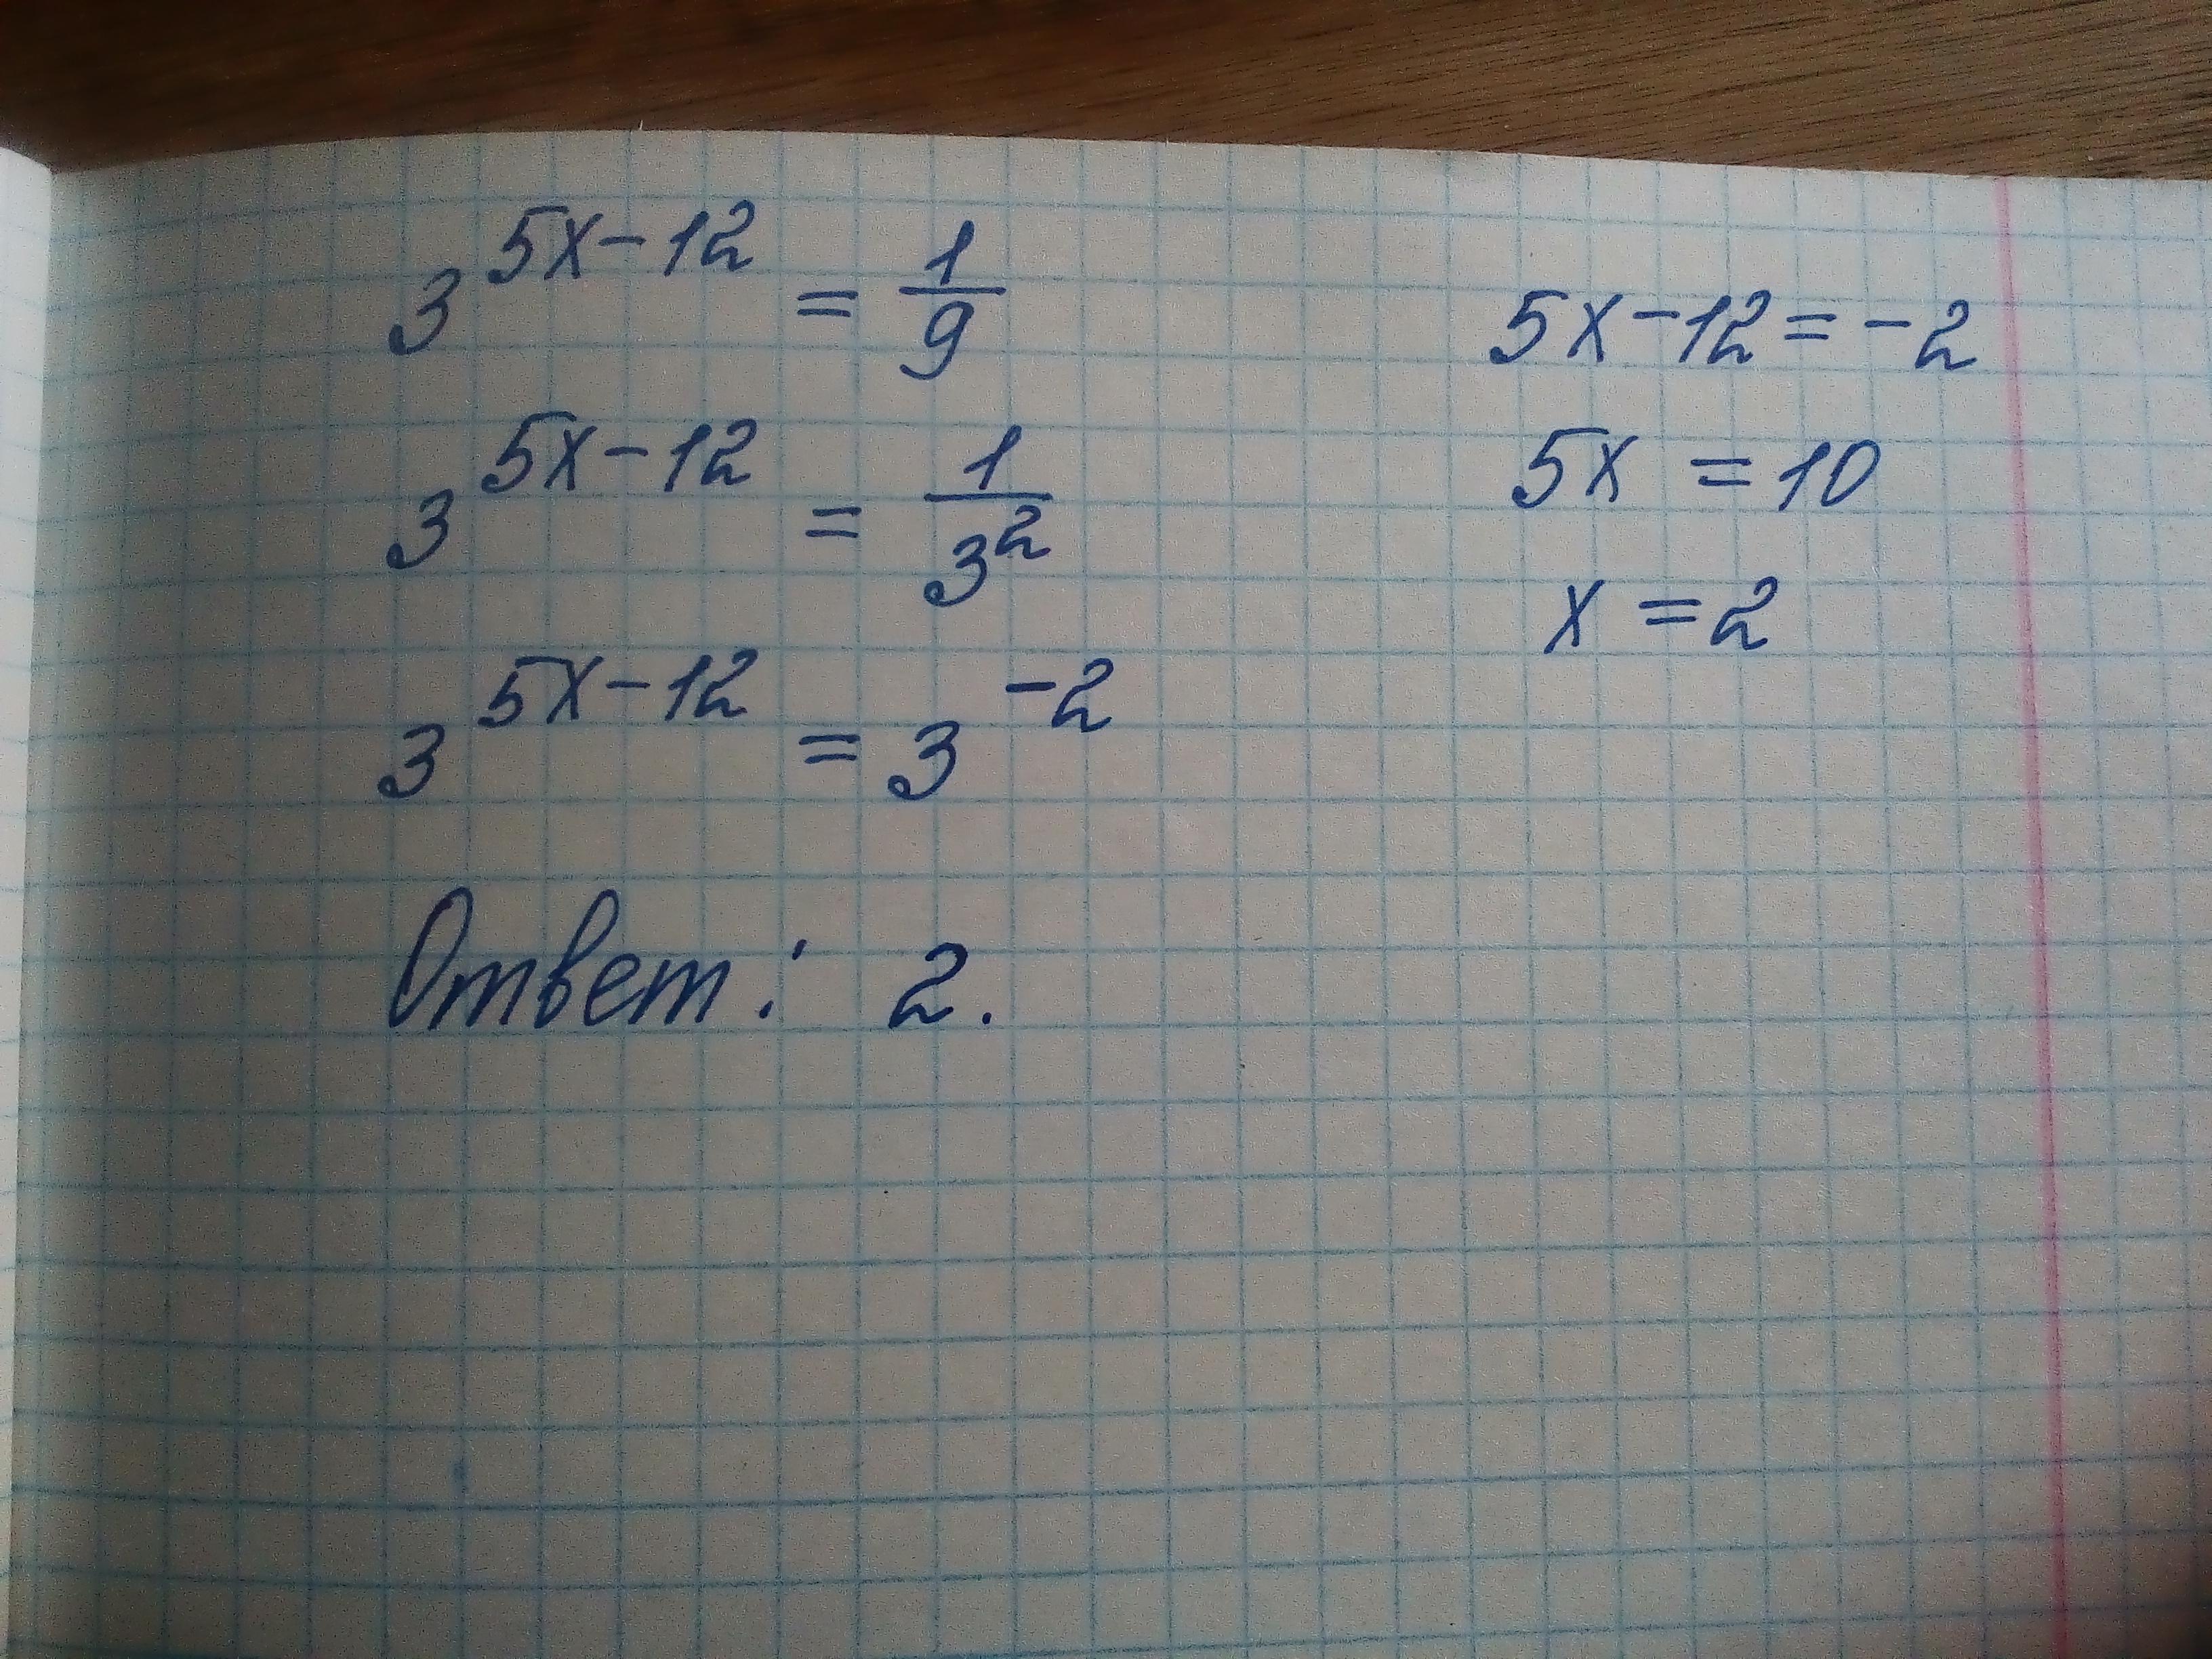 3^{5x-12} = \frac{1}{9}
3^{5x-12} = \frac{1}{3^2}
3^{5x-12} = 3^{-2}
5x-12=-2
5x = 10
x = 2
Ответ: 2.